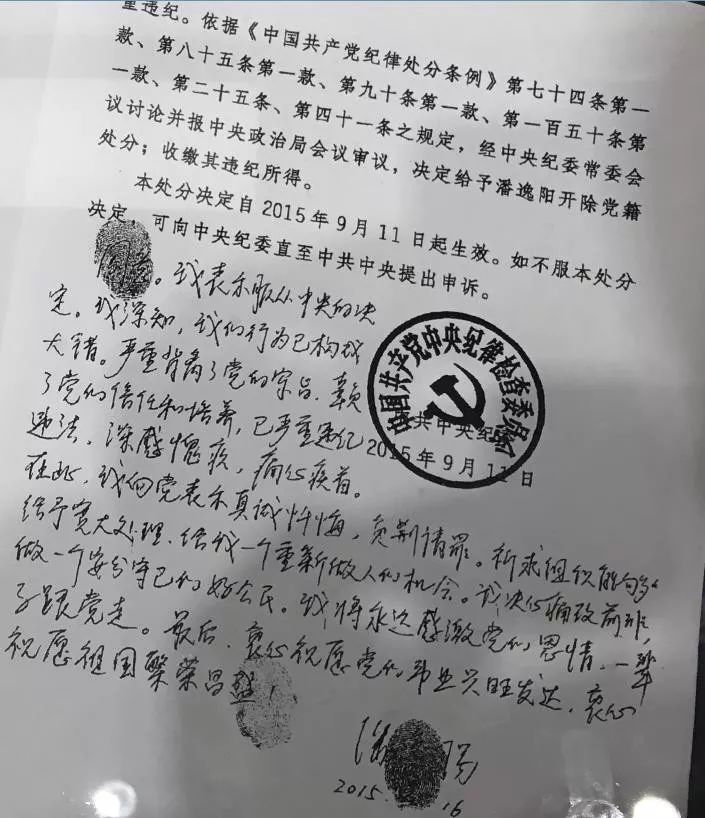 重违纪。依据《中国共产党纪律处分条例》第七十四条第一
款、第八十五条第一款、第九十条第一款、第一百五十条第
一款、第二十五条、第四十一条之规定，经中央纪委常委会
议讨论并报中央政治局会议审议，决定给予潘逸阳开除党籍
处分；收缴其违纪所得。
本处分决定自 2015年9月11日起生效。如不服本处分
决定，可向中央纪委直至中共中央提出申诉。
同意。我表示服从中央的决
定。我深知，我的行为已构成
大错。严重背离了党的宗旨，
了党的信任和培养，已严重违纪
违法，深感愧疚，痛心疾首。
在此，我向党表示真诚忏悔，负荆请罪。祈求组织能够
给予宽大处理，给我一个重新做人的机会。我决心痛改前非，
做一个安分守己的好公民。我将永远感激党的恩情，一辈
子跟党走。最后，衷心祝愿党的事业兴旺发达，衷心
祝愿祖国繁荣昌盛！
中国共产党中央纪律检查委员会
共中央纪
2015年9月11日
潘 阳
2015. 16